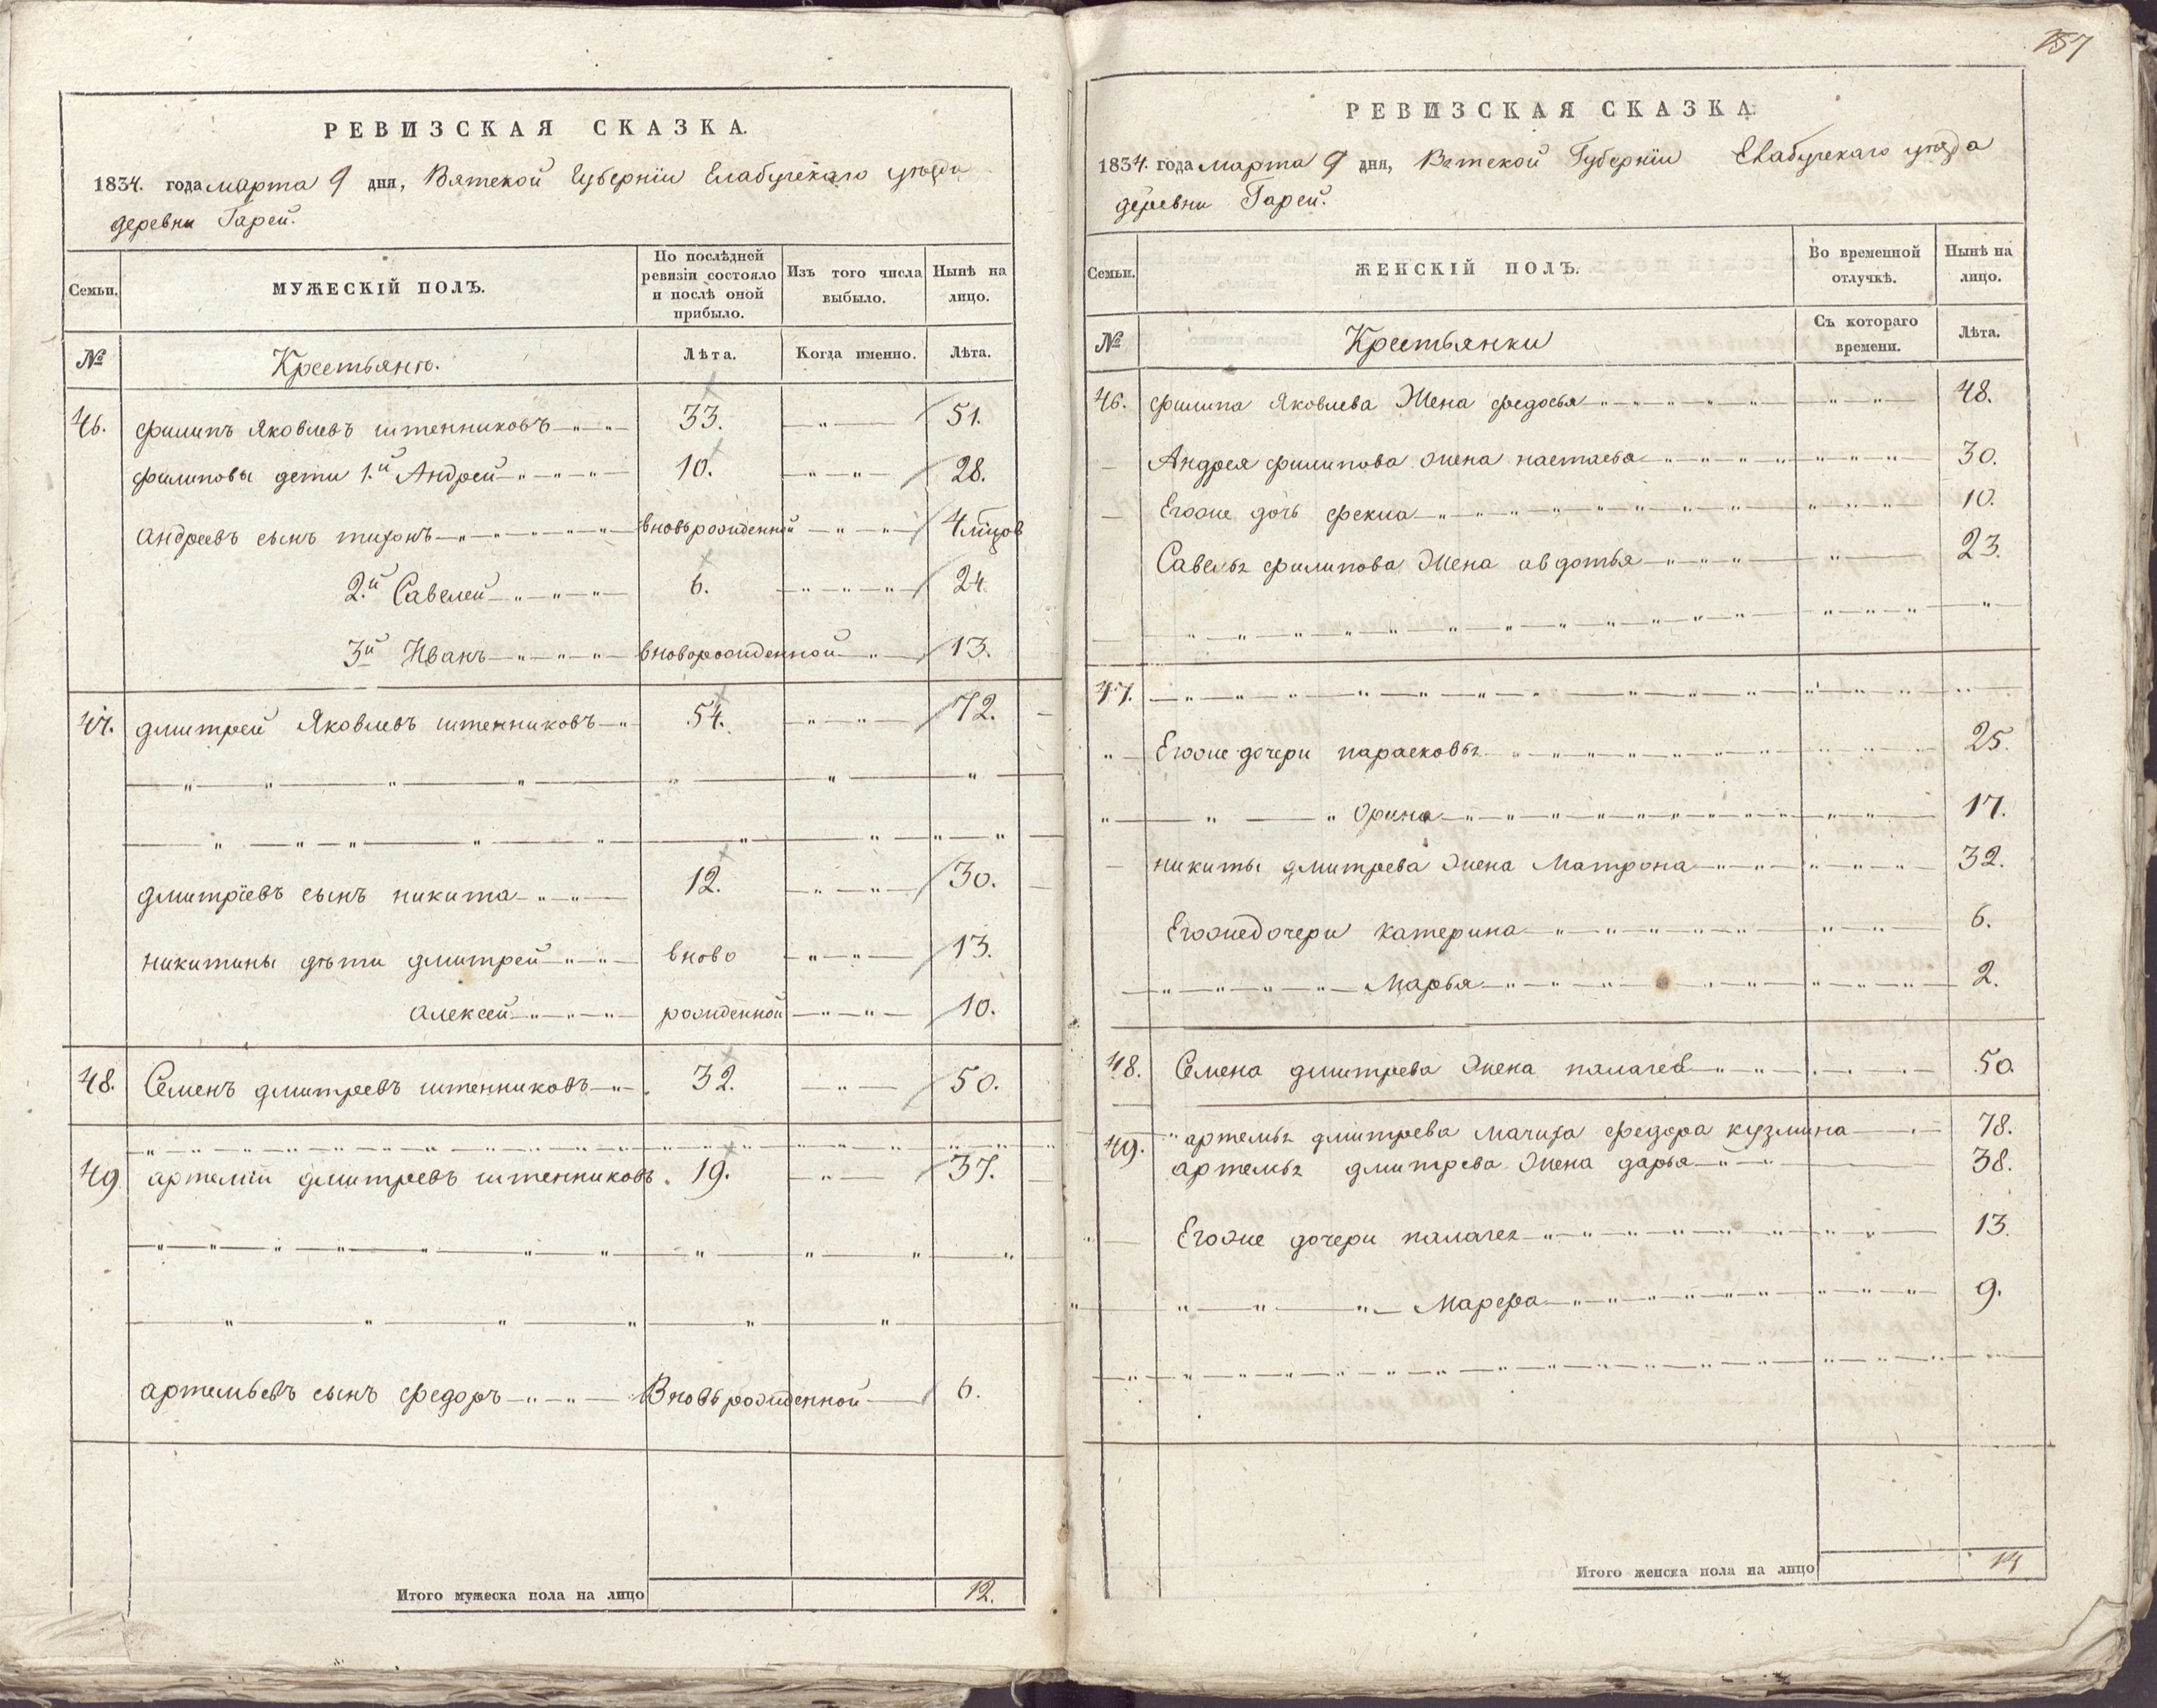 РЕВИЗСКАЯ СКАЗКА.
1834. года марта 9 дня, Вятской Губернiи Елабугскаго уѣзда
деревни Гарей.
Семьи. МУЖЕСКIЙ ПОЛЪ. По послѣдней ревизiи состояло и послѣ оной прибыло. Изъ того числа выбыло. Нынѣ на лицо.
№ Крестьянѣ. Лѣта. Когда именно. Лѣта.
46. филипъ Яковлевъ штенниковъ 33. 51.
филиповы дети 1.й Андрей 10. 28.
андреевъ сынъ тихонъ вновьрожденной 4 мцов
2.й Савелей 6. 24.
3й Иванъ вноворожденной 13.
47. дмитрей Яковлевъ штенниковъ 54. 72.
дмитрiевъ сынъ никита 12. 30.
никитины дѣти дмитрей вново 13.
алексей рожденной 10.
48. Семенъ дмитреевъ штенниковъ 32. 50.
49 артемiй дмитреевъ штенниковъ. 19. 37.
артемьевъ сынъ федоръ Вновьрожденной 6.
Итого мужеска пола на лицо 12.
157
РЕВИЗСКАЯ СКАЗКА
1834. года марта 9 дня, Вятской Губернiи Елабугскаго уѣзда
деревни Гарей.
Семьи. ЖЕНСКIЙ ПОЛЪ. Во временной отлучкѣ. Нынѣ на лицо.
№ Крестьянки Съ котораго времени. Лѣта.
46. филипа Яковлева Жена федосья 48.
Андрея филипова жена настасья 30.
Егоже дочь фекла 10.
Савелья филипова Жена авдотья 23.
47.
Егоже дочери парасковья 25.
Орина 17.
никиты дмитрева жена Матрона 32.
Егожедочери катерина 6.
Марья 2.
48. Семена дмитрева жена палагея 50.
49. артемья дмитрева мачиха федора кузмина 78.
артемья дмитрева жена дарья 38.
Егоже дочери палагея 13.
Марфа 9.
Итого женска пола на лицо 14